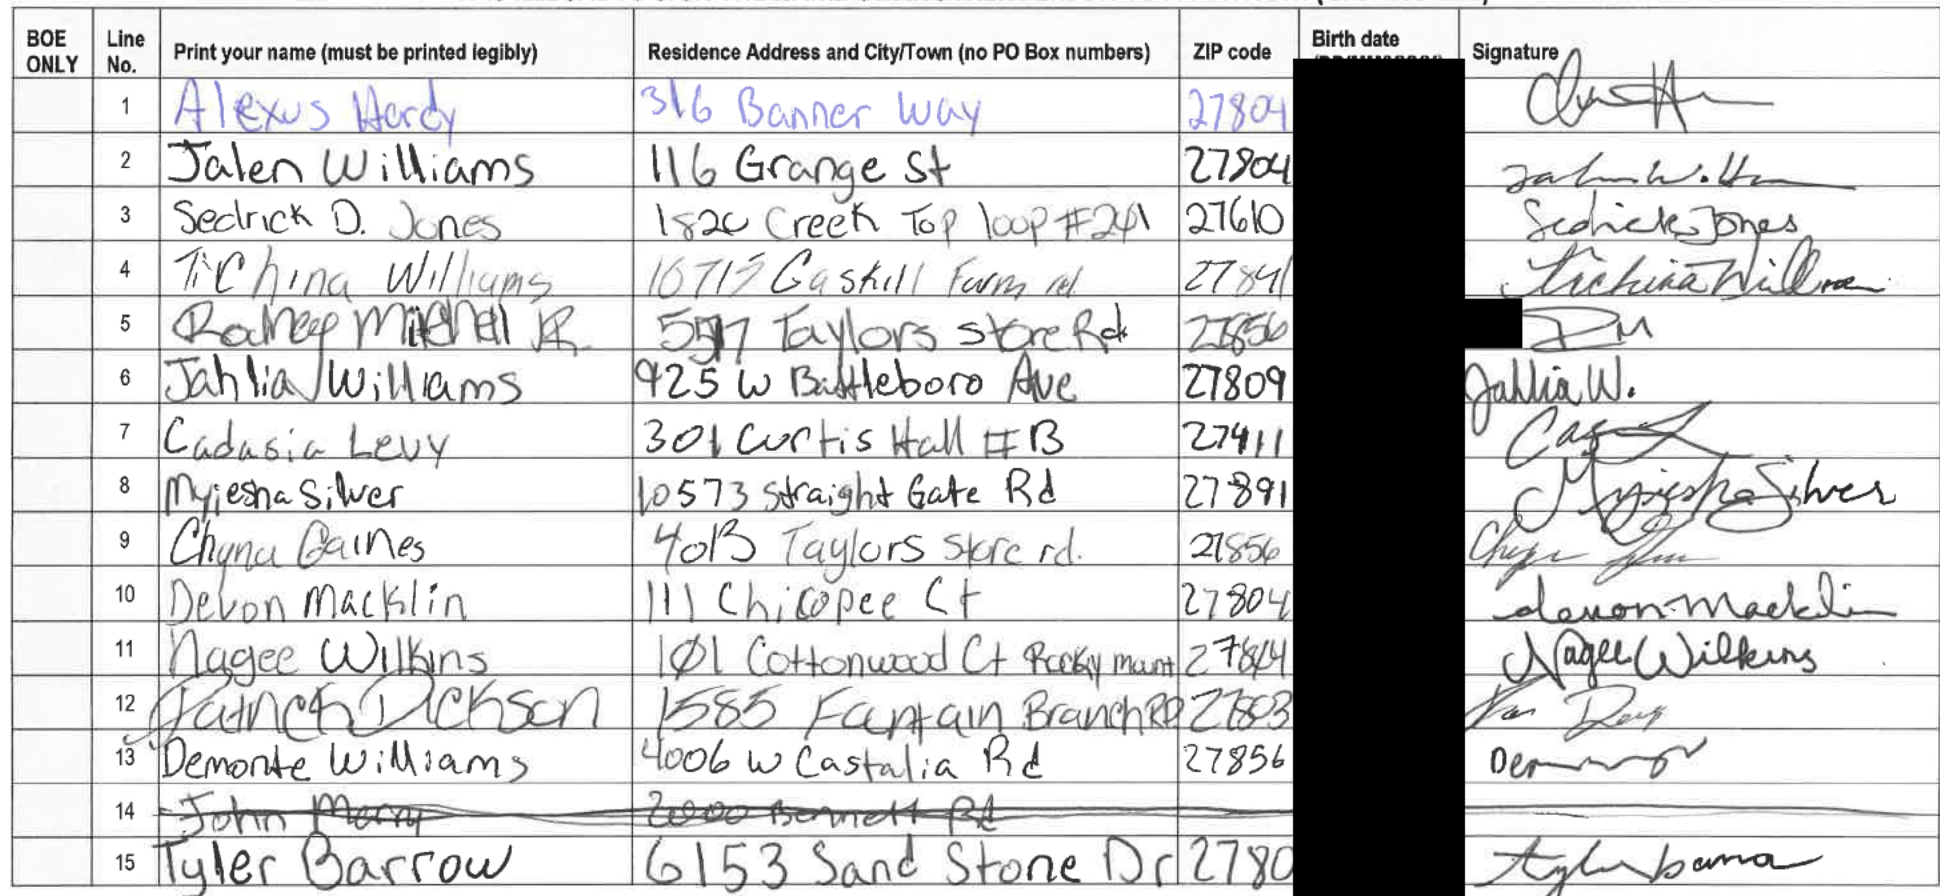 BOE ONLY Line No. Print your name (must be printed legibly) Residence Address and City/Town (no PO Box numbers) ZIP code Birth date Signature
1 Alexus Hardy 316 Banner Way 27804
2 Jalen Williams 116 Grange St 27804
3 Sedrick D. Jones 1820 Creek Top loop #241 27610 Sedrick Jones
4 TiChina Williams Gaskill Farm rd Tichina Williams
5 Rodney Mitchell JR. Taylors store Rd 27856
6 Jahlia Williams 925 W Battleboro Ave 27809 Jahlia W.
7 Cadasia Levy 301 Curtis Hall #B 27411
8 Myiesha Silver 10573 Straight Gate Rd 27891 Myiesha Silver
9 Chyna Gaines Taylors Store rd. 27856
10 Devon Macklin 111 Chicopee Ct 27804 devon macklin
11 Nagee Wilkins 101 Cottonwood Ct Rocky mount Nagee Wilkins
12 Patrick Dickson 1585 Fantain Branch RD 27803
13 Demonte Williams 4006 W Castalia Rd 27856
14 John Bennett Rd
15 Tyler Barrow 6153 Sand Stone Dr 2780